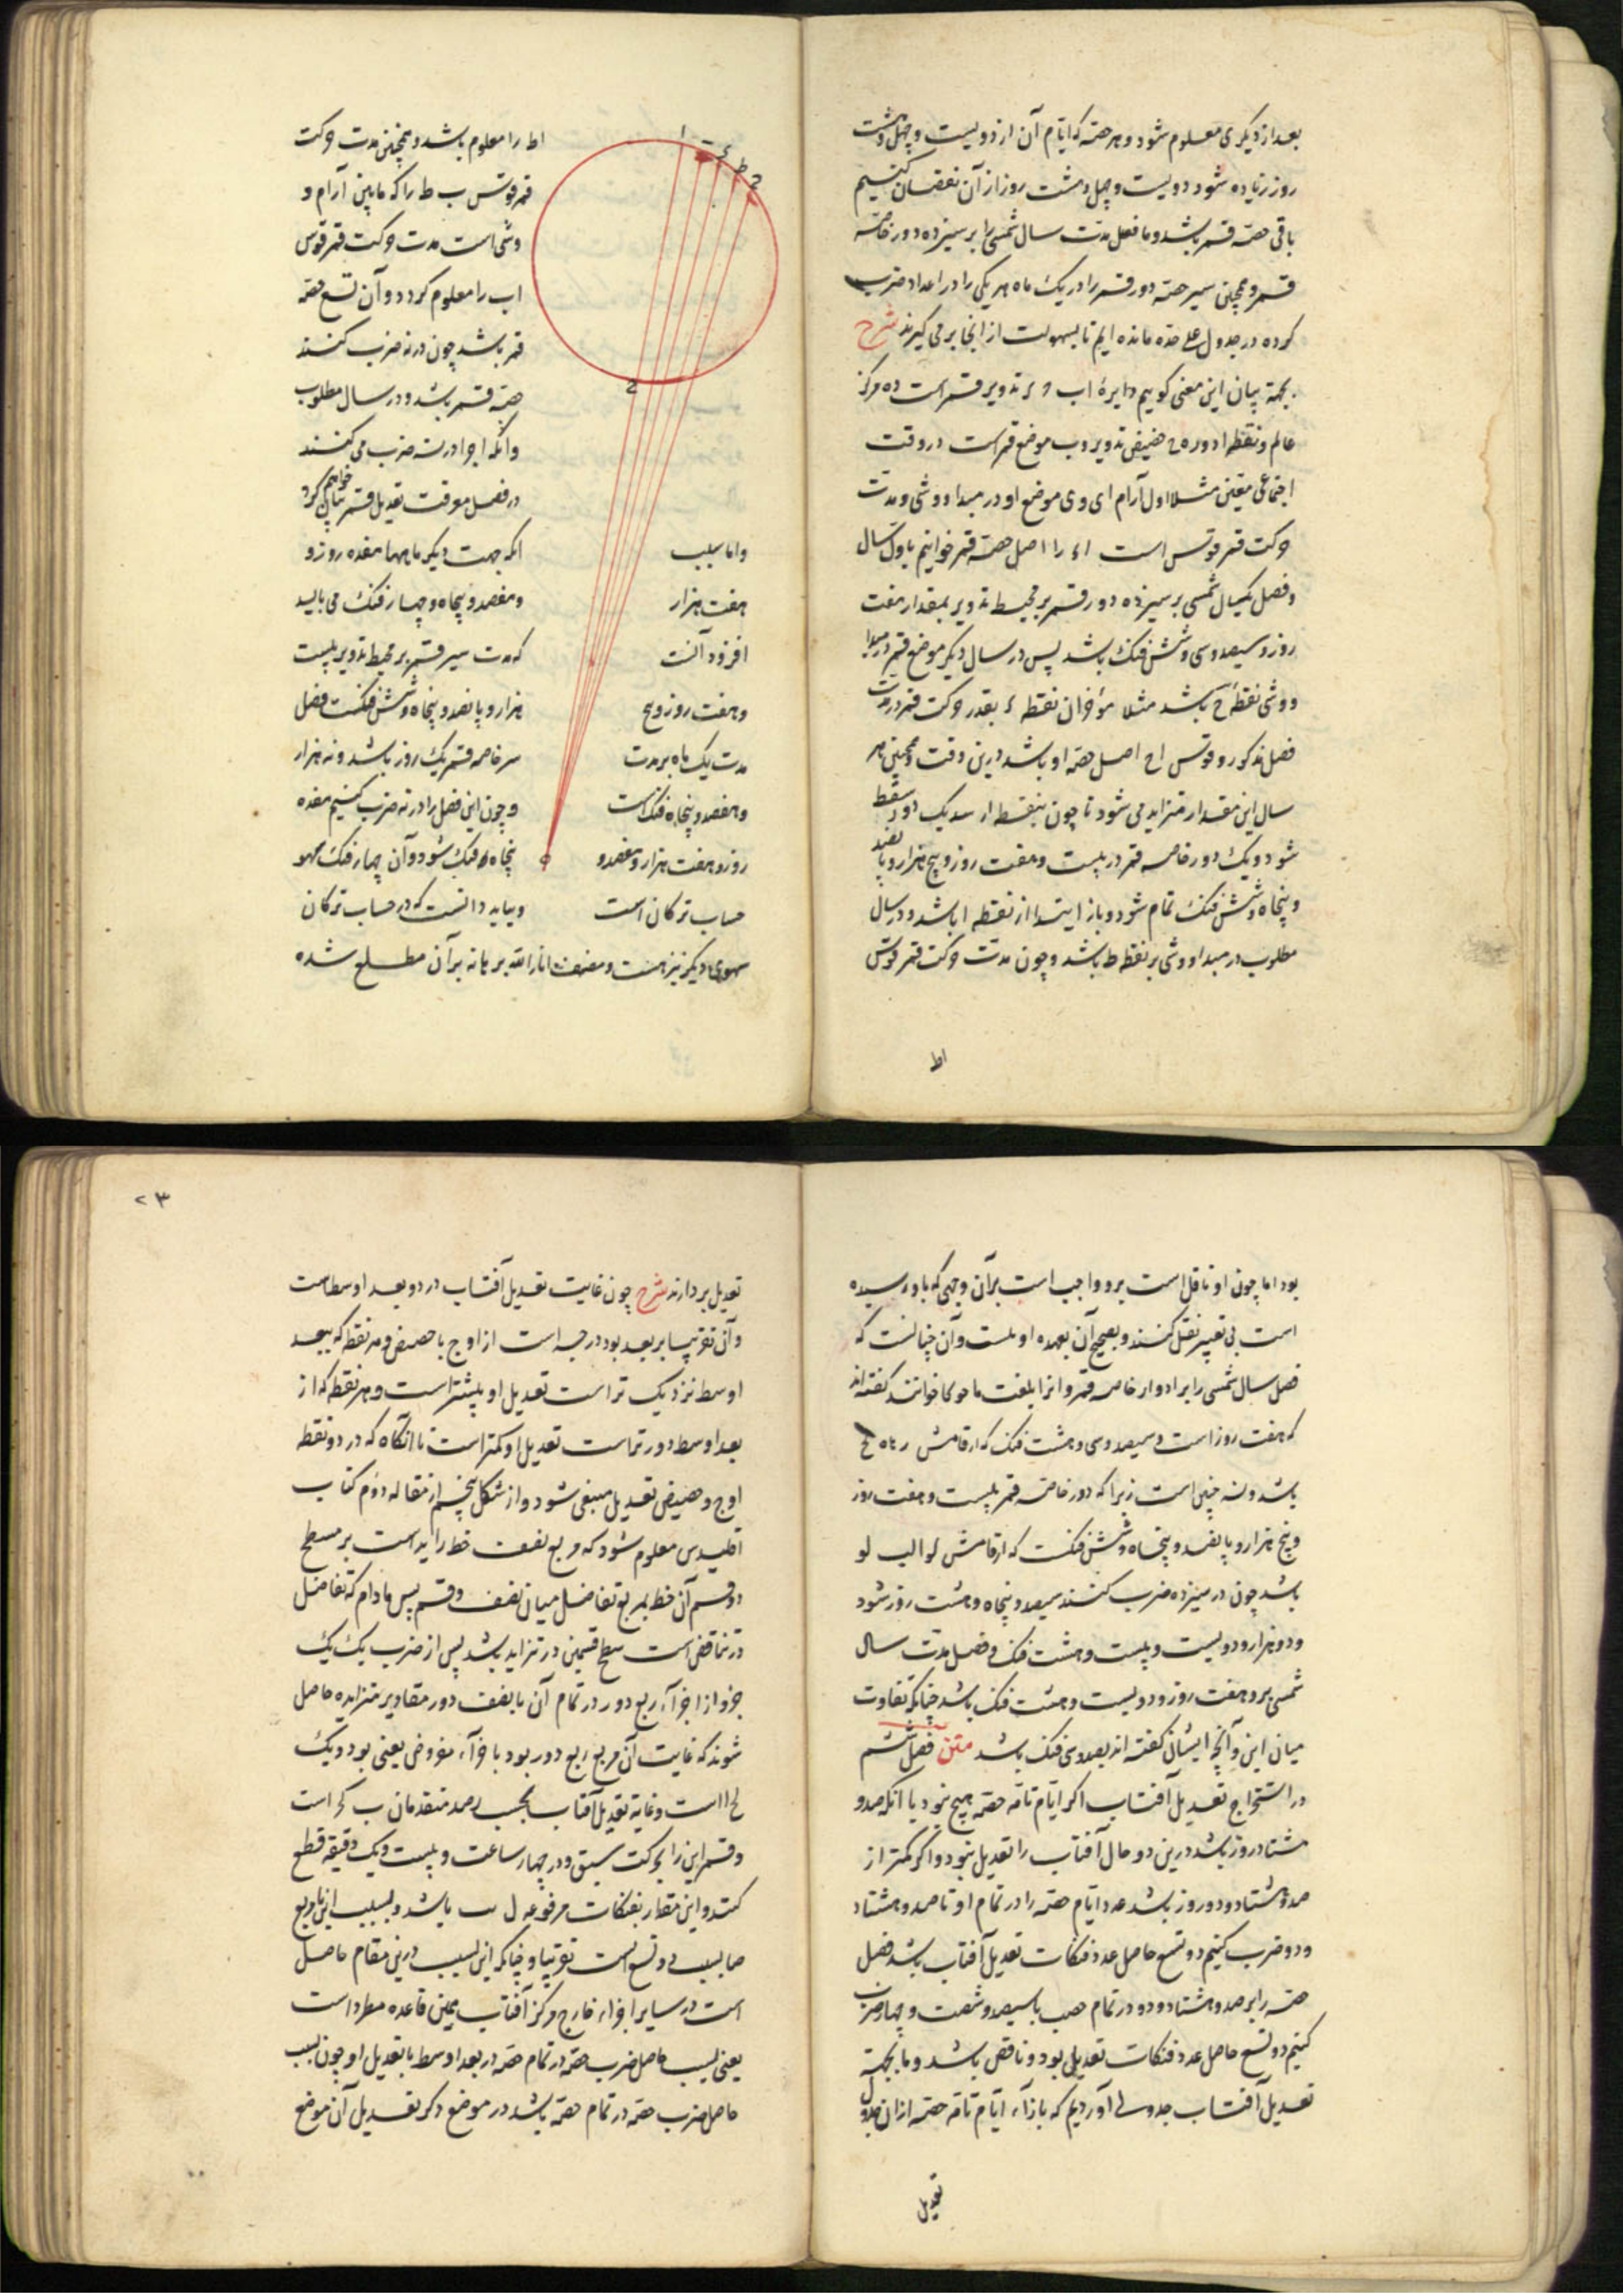 بعد از دیگری معلوم شود و هر حصه که ایام آن از دویست و چهل و هشت
روز زیاده شود دویست و چهل و هشت روز از آن نقصان کنیم
باقی حصه قمر باشد و ما فضل مدت سال شمسی را بر سیزده دور خاصه
قمر و همچنین سیر حصه دور قمر را در یک ماه هر یکی را در اعداد ضرب
کرده در جدول علی حده مانده ایم تا بسهولت از انجا بر می گیرند شرح
بجهة بیان این معنی گوییم دایرهٔ اب تدویر قمر است و ه مرکز
عالم و نقطه ا ذروه و ح حضیض تدویر و ب موضع قمر است در وقت
اجتماعی معین مثلا اول آرام ای و ی موضع او در مبدا ووشی و مدت
حرکت قمر قوس است اء را اصل حصه قمر خوانیم باول سال
و فضل یکسال شمسی بر سیزده دور قمر بر محیط تدویر بمقدار هفت
روز و سیصد و سی و شش فنک باشد پس در سال دیگر موضع قمر در مبدا
ووشی نقطه ح باشد مثلا مؤخر از نقطه ء بقدر حرکت قمر در مدت
فضل مذکور و قوس اح اصل حصه او باشد درین وقت و همچنین هر
سال این مقدار متزاید می شود تا چون بنقطه ا رسد یک دور سقط
شود و یک دور خاصه قمر در بیست و هفت روز و پنج هزار و پانصد
و پنجاه و شش فنک تمام شود و باز ابتدا از نقطه ا باشد و در سال
مطلوب در مبدا ووشی بر نقطه ط باشد و چون مدت حرکت قمر قوس
اط
اط را معلوم باشد و همچنین مدت حرکت
قمر قوس ب ط را که مابین آرام و
وشی است مدت حرکت قمر قوس
اب را معلوم گردد و آن تسع حصه
قمر باشد چون در نه ضرب کنند
حصه قمر باشد در سال مطلوب
و آنکه اجرا در نه ضرب می کنند
در فصل معرفت تعدیل قمر بیان خواهیم کرد
و اما بسبب آنکه جهت دیگر ماهها هفده روز و
هفت هزار و هفصد و پنجاه و چهار فنک می باید
افزود آنست که مدت سیر قمر بر محیط تدویر بیست
و هفت روز و پنج هزار و پانصد و پنجاه و شش فنکست و فضل
مدت یک ماه بر مدت سر خاصه قمر یک روز باشد و نه هزار
و هفصد و پنجاه فنک است و چون این فضل را در نه ضرب کنیم هفده
روز و هفت هزار و هفصد و پنجاه فنک شود و آن چهار فنک سهو
حساب ترکان است و بباید دانست که در حساب ترکان
سهوی دیگر نیز هست و مصنف انار الله برهانه بر آن مطلع شده
ا
ب
ء
ط
ح
ح
ه
بود اما چون او ناقل است برو واجب است بر آن وجهی که باو رسیده
است بی تغییر نقل کند و تصحیح آن بعهده او نیست و آن چنانست که
فضل سال شمسی را بر ادوار خاصه قمر و انرا بلغت ما حوکا خوانند گفته اند
که هفت روز است و سیصد و سی و هشت فنک که ارقامش ر ه لح
باشد و نه چنین است زیرا که دور خاصه قمر بیست و هفت روز
و پنج هزار و پانصد و پنجاه و شش فنکست که ارقامش لو الب لو
باشد چون در سیزده ضرب کنند سیصد و پنجاه و هشت روز شود
و دو هزار و دویست و بیست و هشت فنک و فضل مدت سال
شمسی برو هفت روز و دویست و هشت فنک باشد چنانکه تفاوت
میان این و آنچه ایشان گفته اند بصد و سی فنک باشد متن فصل ششم
در استخراج تعدیل آفتاب اگر ایام تامه حصه هیچ نبود یا آنکه صد و
هشتاد روز باشد درین دو حال آفتاب را تعدیل نبود و اگر کمتر از
صد و هشتاد و دو روز باشد عدد ایام حصه را در تمام او تا صد و هشتاد
و دو ضرب کنیم دو تسع حاصل عدد فنکات تعدیل آفتاب باشد فضل
حصه را بر صد و هشتاد و دو در تمام حصه با سیصد و شصت و چهار ضرب
کنیم دو تسع حاصل عدد فنکات تعدیلی بود و ناقص باشد و ما بجهة
تعدیل آفتاب جدولی آوردیم که بازاء ایام تامه حصه از ان جدول
تعدیل
٢٣
تعدیل بردارند شرح چون غایت تعدیل آفتاب در دو بعد اوسط است
و آن تقریبا بر بعد نود درجه است از اوج یا حضیض و هر نقطه که ببعد
اوسط نزدیک تر است تعدیل او بیشتر است و هر نقطه که از
بعد اوسط دورتر است تعدیل او کمتر است تا آنگاه که در دو نقطه
اوج و حضیض تعدیل منتفی شود و از شکل پنجم از مقاله دوم کتاب
اقلیدس معلوم شود که مربع نصف خط زاید است بر مسطح
دو قسم آن خط بمربع تفاضل میان نصف و قسم پس مادام که تفاضل
در تناقص است سطح قسمین در تزاید باشد پس از ضرب یک یک
جزو از اجزآء ربع دور در تمام آن با نصف دور مقادیر متزایده حاصل
شوند که غایت آن مربع ربع دور بود باجزآء مفروض یعنی نود و یک
لح ا است و غایة تعدیل آفتاب بحسب رصد متقدمان ب کح است
و قمر این را بحرکت سبق در چهار ساعت و بیست و یک دقیقه قطع
کند و این مقدار بفنکات مرفوعه ل ب باشد و نسبت این با مربع
حاصل نسبت دو تسع است تقریبا و چنانکه این نسبت درین مقام حاصل
است در سایر اجزاء خارج مرکز آفتاب همین قاعده مطرد است
یعنی نسبت حاصل ضرب حصه در تمام حصه در بعد اوسط با تعدیل او چون نسبت
حاصل ضرب حصه در تمام حصه باشد در موضع دگر تعدیل آن موضع